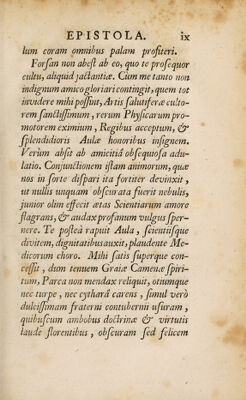 EPISTOLA. ix
lum coram omnibus palam profiteri.
Forſan non abeſt ab eo, quo te proſequor
cultu, aliquid jactantiæ. Cùm me tanto non
indignum amico gloriari contingit, quem tot
invidere mihi poſſint, Artis ſalutiferæ culto-
rem ſanctiſſimum, rerum Phyſicarum pro-
motorem eximium, Regibus acceptum, &
ſplendidioris Aulæ honoribus inſignem.
Verùm abſit ab amicitiâ obſequioſa adu-
latio. Conjunctionem iſtam animorum, quæ
nos in ſorte diſpari ita fortiter devinxit,
ut nullis unquam obſcurata fuerit nebulis,
junior olim effecit ætas Scientiarum amore
flagrans, & audax profanum vulgus ſper-
nere. Te poſteà rapuit Aula, ſcientiſque
divitem, dignitatibus auxit, plaudente Me-
dicorum choro. Mihi ſatis ſuperque con-
ceſſit, dum tenuem Graiæ Camenæ ſpiri-
tum, Parca non mendax reliquit, otiumque
nec turpe, nec cytharâ carens, ſimul verò
dulciſſimam fraterni contubernii uſuram,
quibuſcum ambobus doctrinæ & virtutis
laude florentibus, obſcuram ſed felicem